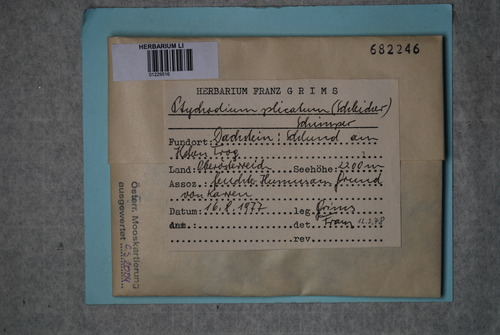 HERBARIUM LI
682246
HERBARIUM FRANZ GRIMS
Ptychodium plicatum (Schleicher)
Schimper
Fundort: Dachstein: Schlund am
Hohen Trog
Land: Oberösterreich Seehöhe: 2200 m
Assoz. feuchte Humus am Grund
von Karren
Datum: 16.8.1977 leg. Grims
det. Franz
rev.
Österr. Mooskartierung
ausgewertet